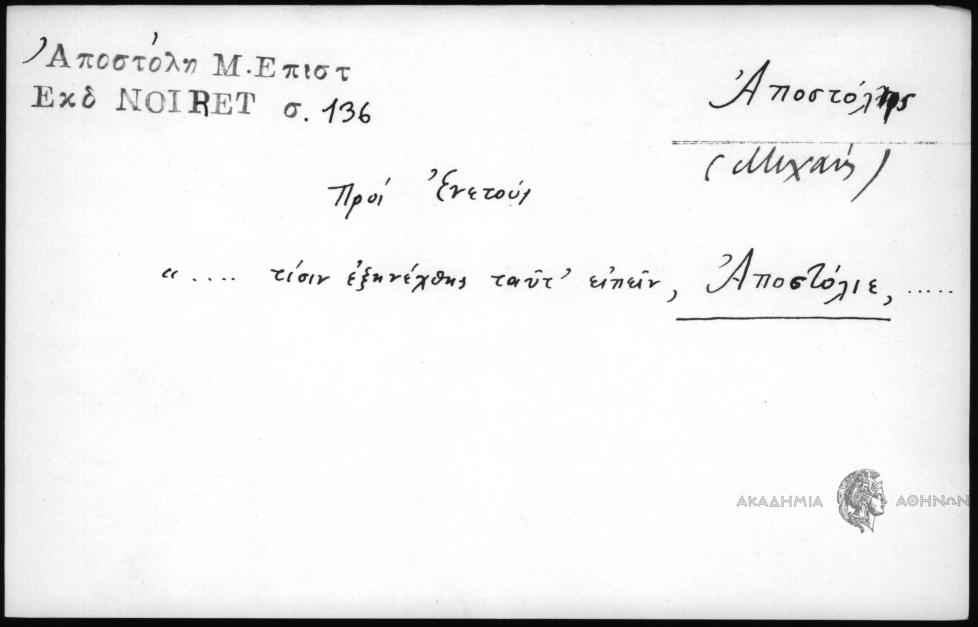 Ἀποστόλη Μ. Επιστ
Εκδ NOIRET σ. 136
Ἀποστόλης
(Μιχαήλ)
Πρὸς Ἐνετούς
“ .... τίσιν ἐξηνέχθης ταῦτ’ εἰπεῖν, Ἀποστόλιε, .....
ΑΚΑΔΗΜΙΑ ΑΘΗΝΩΝ